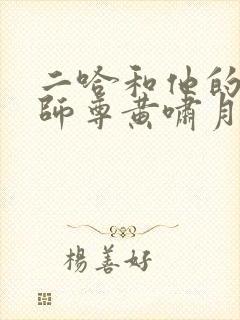 二哈和他的
師尊黄嘯月
楊善好